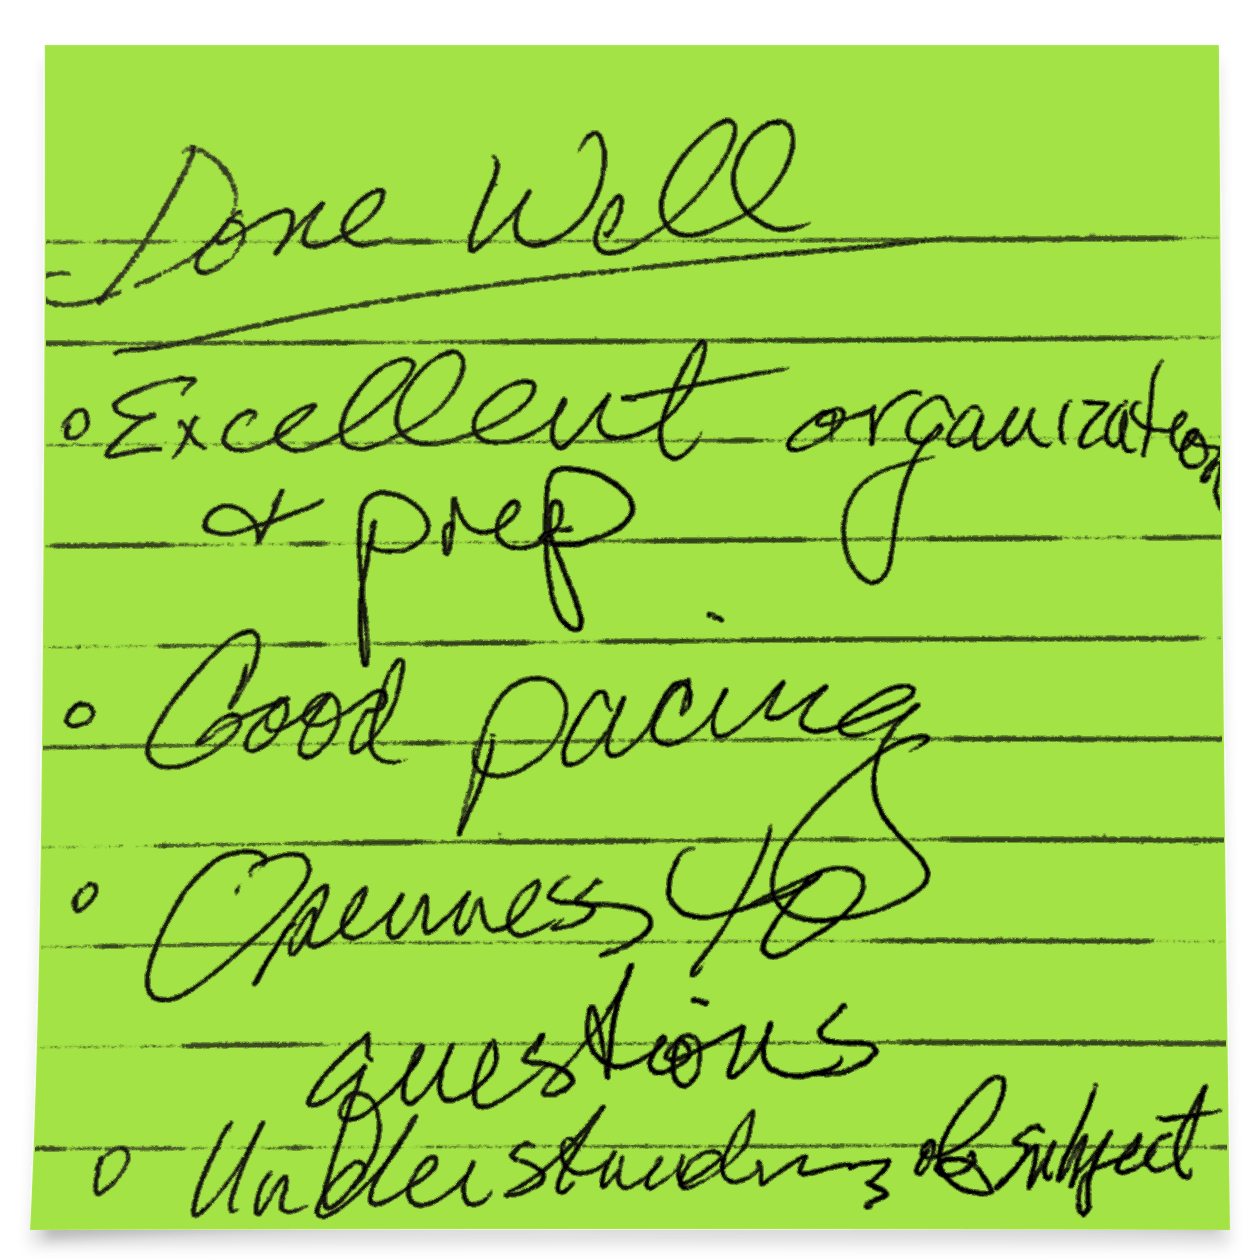 Done Well
◦ Excellent organization
& prep
◦ Good pacing
◦ Openness to
questions
◦ Understanding of subject